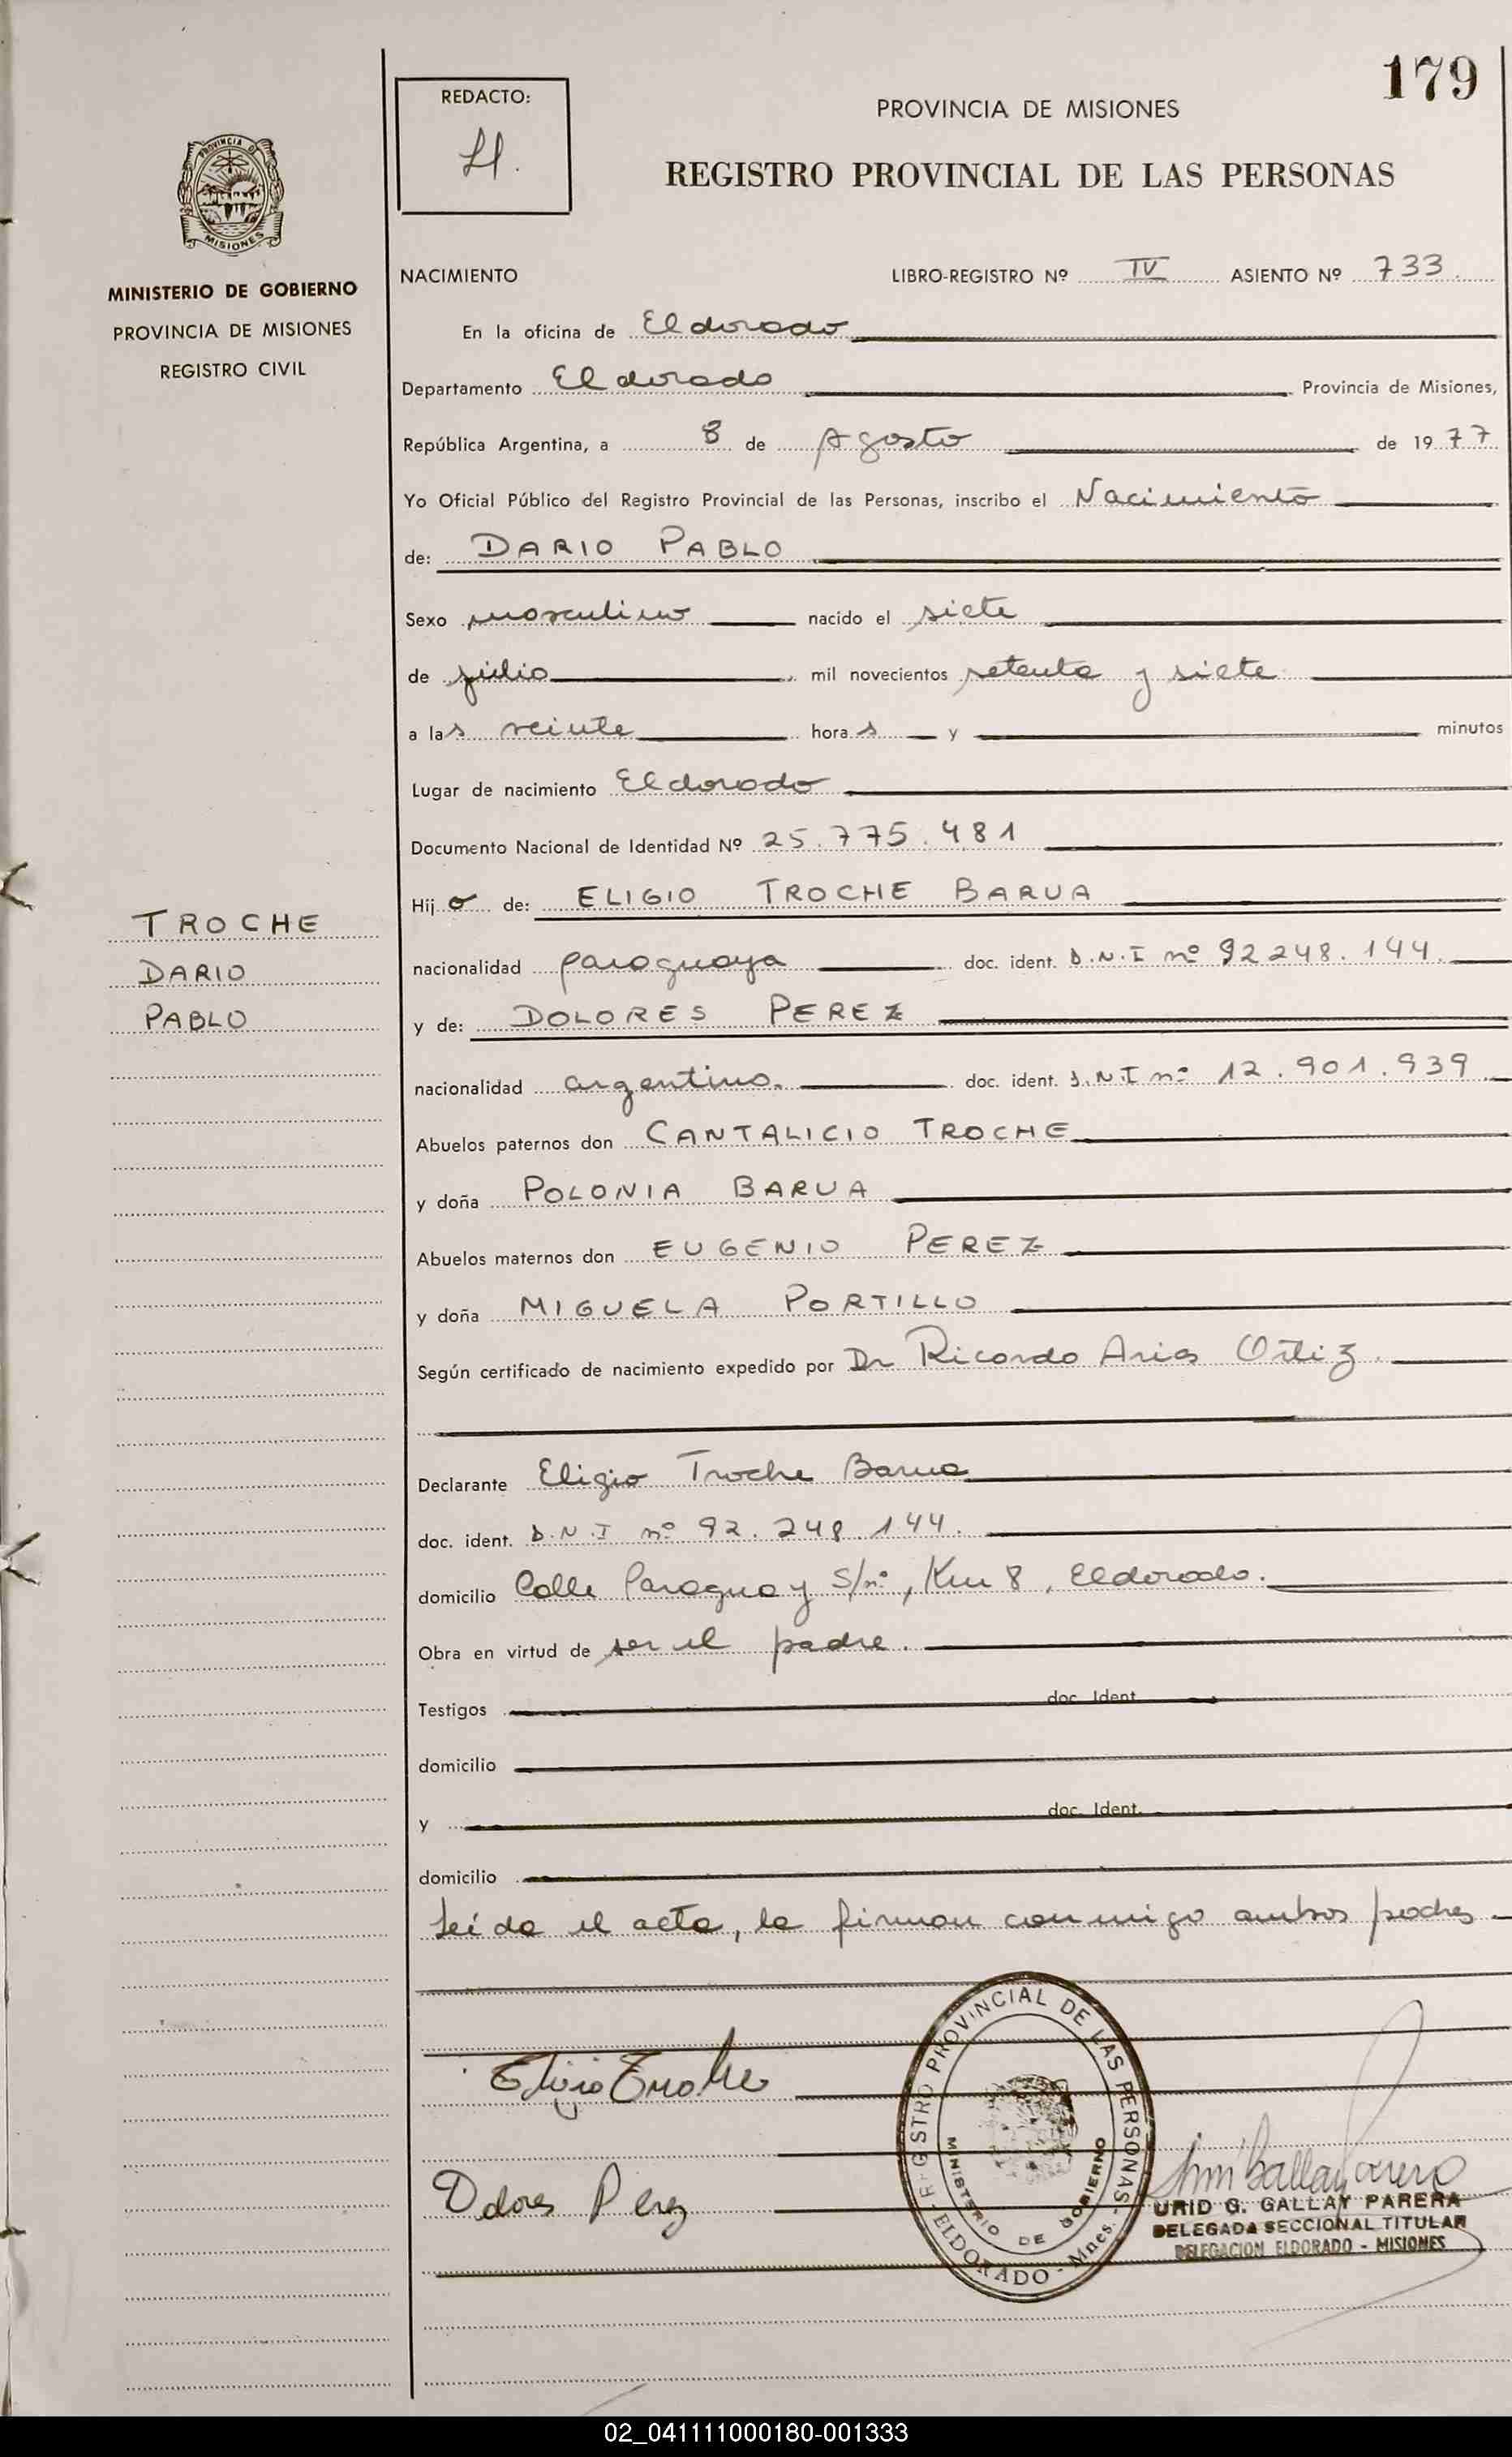 179
REDACTO:
PROVINCIA DE MISIONES
REGISTRO PROVINCIAL DE LAS PERSONAS
PROVINCIA DE
MISIONES
MINISTERIO DE GOBIERNO
PROVINCIA DE MISIONES
REGISTRO CIVIL
NACIMIENTO LIBRO-REGISTRO Nº IV ASIENTO Nº 733
En la oficina de Eldorado
Departamento Eldorado Provincia de Misiones,
República Argentina, a 8 de Agosto de 1977
Yo Oficial Público del Registro Provincial de las Personas, inscribo el Nacimiento
de: DARIO PABLO
Sexo masculino nacido el siete
de julio mil novecientos setenta y siete
a las veinte horas y minutos
Lugar de nacimiento Eldorado
Documento Nacional de Identidad Nº 25.775.481
Hijo de: ELIGIO TROCHE BARUA
TROCHE
DARIO
PABLO
nacionalidad paraguaya doc. ident. D.N.I nº 92248.144.
y de: DOLORES PEREZ
nacionalidad argentina. doc. ident. D.N.I nº 12.901.939
Abuelos paternos don CANTALICIO TROCHE
y doña POLONIA BARUA
Abuelos maternos don EUGENIO PEREZ
y doña MIGUELA PORTILLO
Según certificado de nacimiento expedido por Dr Ricardo Arias Ortiz.
Declarante Eligio Troche Barua
doc. ident. D.N.I nº 92.248.144.
domicilio Calle Paraguay S/nº, Km 8, Eldorado.
Obra en virtud de ser el padre.
Testigos doc. Ident
domicilio
y doc. Ident.
domicilio
Leída el acta, la firman conmigo ambos padres.
Eligio Troche
Dolores Perez
REGISTRO PROVINCIAL DE LAS PERSONAS
MINISTERIO DE GOBIERNO
ELDORADO - Mnes.
URID G. GALLAY PARERA
DELEGADA SECCIONAL TITULAR
DELEGACION ELDORADO - MISIONES
02_041111000180-001333